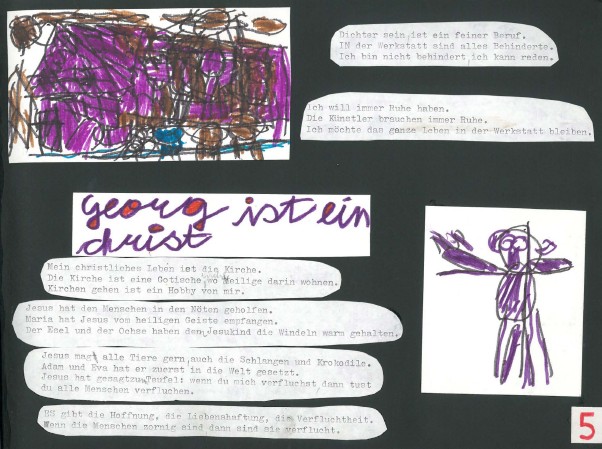 Dichter sein ist ein feiner Beruf.
IN der Werkstatt sind alles Behinderte.
Ich bin nicht behindert ich kann reden.
Ich will immer Ruhe haben.
Die Künstler brauchen immer Ruhe.
Ich möchte das ganze Leben in der Werkstatt bleiben.
georg ist ein
christ
Mein christliches Leben ist die Kirche.
Die Kirche ist eine Gotische, wo Heilige darin wohnen.
Kirchen gehen ist ein Hobby von mir.
Jesus hat den Menschen in den Nöten geholfen.
Maria hat Jesus vom heiligen Geiste empfangen.
Der Esel und der Ochse haben dem Jesukind die Windeln warm gehalten.
Jesus mag alle Tiere gern, auch die Schlangen und Krokodile.
Adam und Eva hat er zuerst in die Welt gesetzt.
Jesus hat gesagt zum Teufel: wenn du mich verfluchst dann tust
du alle Menschen verfluchen.
ES gibt die Hoffnung, die Liebenshaftung, die Verfluchtheit.
Wenn die Menschen zornig sind dann sind sie verflucht.
5